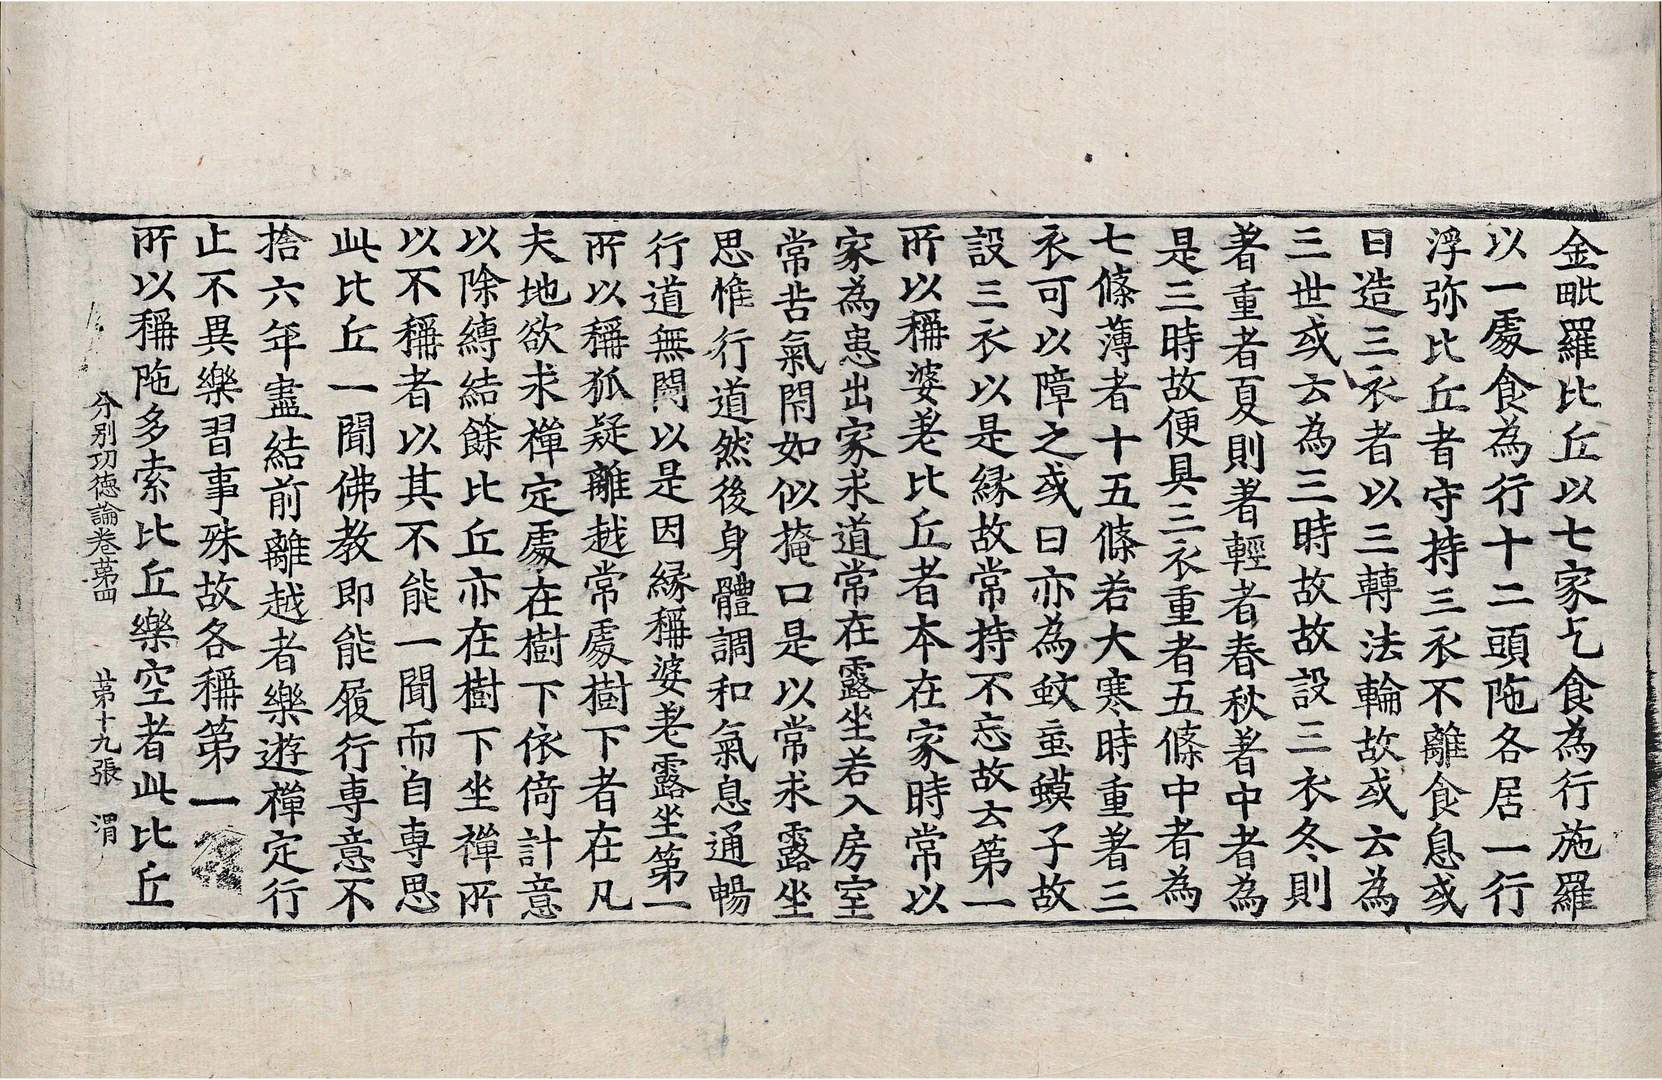 金毗羅比丘以七家乞食為行施羅
以一處食為行十二頭陁各居一行
浮弥比丘者守持三衣不離食息或
曰造三衣者以三轉法輪故或云為
三世或云為三時故故設三衣冬則
著重者夏則著輕者春秋著中者為
是三時故便具三衣重者五條中者為
七條薄者十五條若大寒時重著三
衣可以障之或曰亦為蚊䖟蟆子故
設三衣以是緣故常持不忘故云第一
所以稱婆差比丘者本在家時常以
家為患出家求道常在露坐若入房室
常苦氣閇如似掩口是以常求露坐
思惟行道然後身體調和氣息通暢
行道無閡以是因緣稱婆差露坐第一
所以稱狐疑離越常處樹下者在凡
夫地欲求禪定處在樹下依倚計意
以除縛結餘比丘亦在樹下坐禪所
以不稱者以其不能一聞而自專思
此比丘一聞佛教即能履行專意不
捨六年盡結前離越者樂遊禪定行
止不異樂習事殊故各稱第一
所以稱陁多索比丘樂空者此比丘
分別功德論卷第四 第十九張 渭